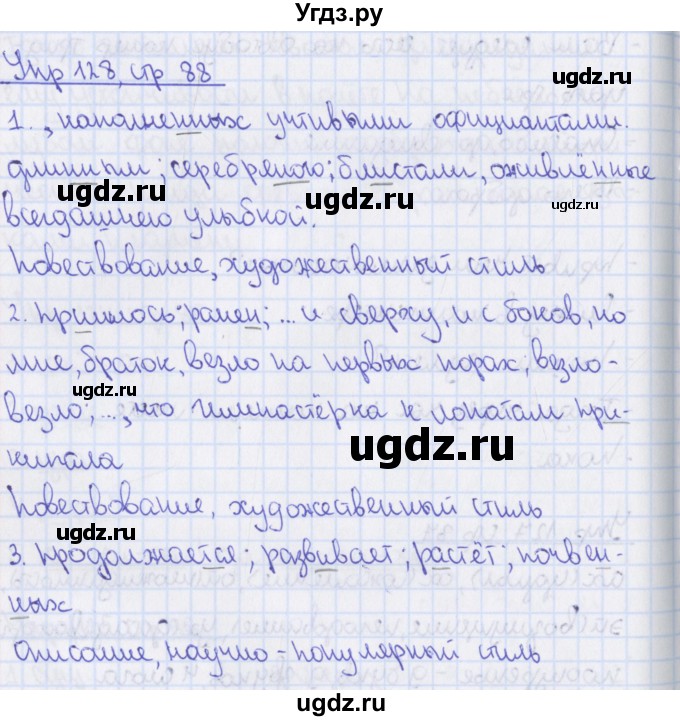 Угдз.ру
Упр 128, стр 88
ugdz.ru
1. , наполненных учтивыми официантами.
длинным; серебряного; блистали, оживлённые
ugdz.ru
ugdz.ru
всегдашнего улыбкой.
ugdz.ru
Повествование, художественный стиль
2. пришлось; ранен; ... и сверху, и с боков, но
мне, браток, везло на первых порах, везло-
ugdz.ru
везло; ..., что гимнастёрка к лопатам при-
ugdz.ru
кипала
Повествование, художественный стиль
ugdz.ru
ugdz.ru
3. продолжается; развивает; растёт; почвен-
ных
Описание, научно-популярный стиль
ugdz.ru